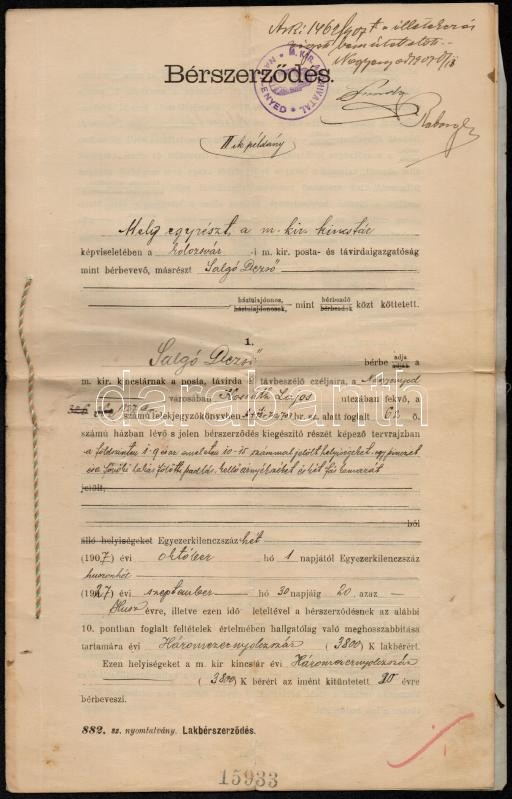 Bérszerződés.
M. KIR. ADÓHIVATAL
NAGYENYED
IIik példány
Mely egyrészt, a m. kir. kincstár
képviseletében a kolozsvár -i m. kir. posta- és távirdaigazgatóság
mint bérbevevő, másrészt Salgó Dezső
háztulajdonos, mint bérbeadó közt köttetett.
háztulajdonosok, bérbeadók
1.
Salgó Dezső bérbe adja a
m. kir. kincstárnak a posta, távirda és távbeszélő czéljaira, a Nagyenyed
városában Kossuth Lajos utczában fekvő, a
számú telekjegyzőkönyvben hr. sz. alatt foglalt ö.
számú házban lévő s jelen bérszerződés kiegészitő részét képező tervrajzban
a földszinten 1-9 és az emeleten 10-15 számmal jelölt helyiségeket, egy pinczét
jelölt,
ból
álló helyiségeket Egyezerkilenczszáz hét
(1907) évi október hó 1 napjától Egyezerkilenczszáz
huszonhét
(1927) évi szeptember hó 30 napjáig 20, azaz
Husz évre, illetve ezen idő leteltével a bérszerződésnek az alábbi
10. pontban foglalt feltételek értelmében hallgatólag való meghosszabbitása
tartamára évi Háromezernyolczszáz (3800) K lakbérért.
Ezen helyiségeket a m. kir kincstár évi Háromezernyolczszáz
(3800) K bérért az imént kitüntetett 20 évre
bérbeveszi.
882. sz. nyomtatvány. Lakbérszerződés.
15933
darabanth